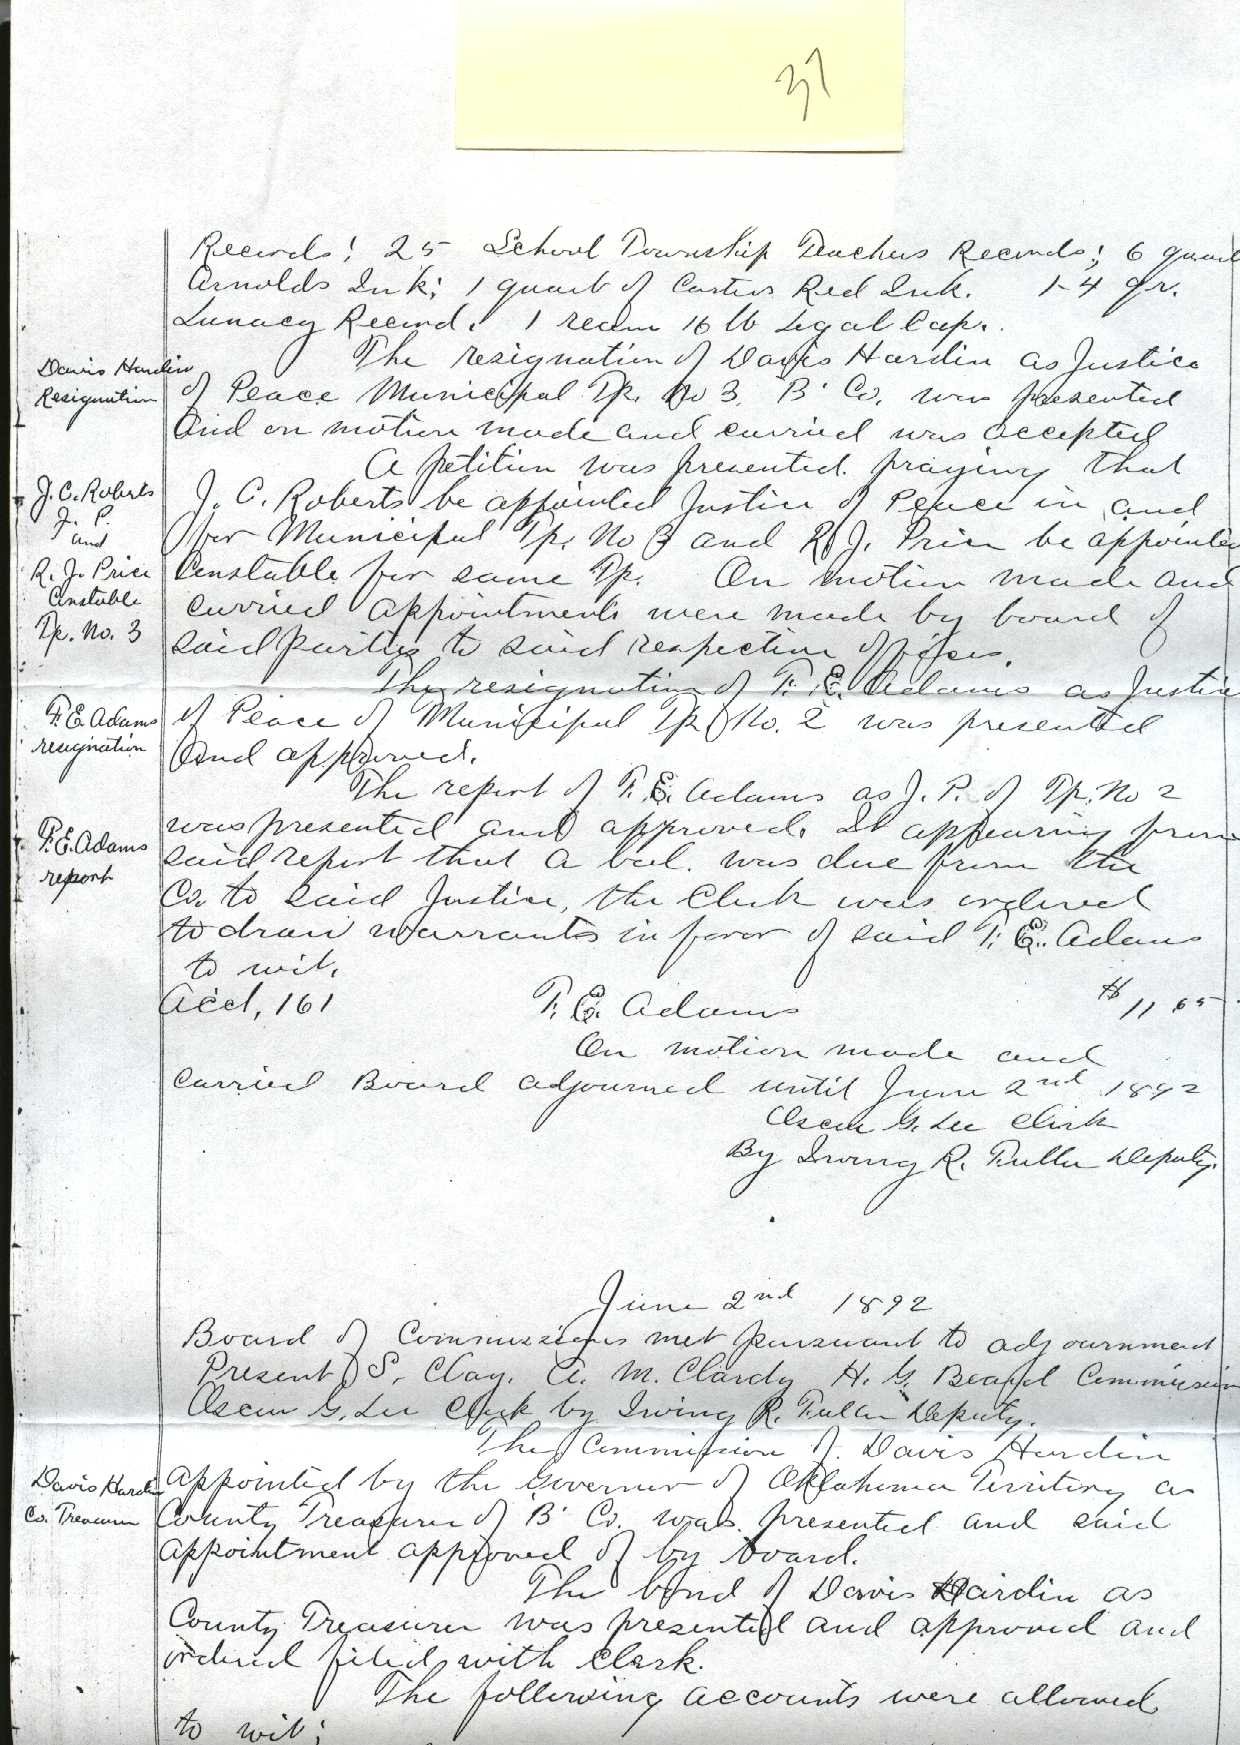 37
Records; 25 School Township Teachers Records; 6 quart
Arnolds Ink; 1 quart of Carters Red Ink. 1-4 qr.
Lunacy Record. 1 ream 16 lb Legal Cap.
Davis Hardin
Resignation
The resignation of Davis Hardin as Justice
of Peace Municipal Tp. No 3, "B" Co. was presented
and on motion made and carried was accepted
J. C. Roberts
J. P.
and
R. J. Price
Constable
Tp. No. 3
A petition was presented praying that
J. C. Roberts be appointed Justice of Peace in and
for Municipal Tp. No 3 and R. J. Price be appointed
Constable for same Tp. On motion made and
carried appointments were made by board of
said parties to said respective offices.
F. E. Adams
resignation
The resignation of F. E. Adams as Justice
of Peace of Municipal Tp. No. 2 was presented
and approved.
F. E. Adams
report
The report of F. E. Adams as J. P. of Tp. No 2
was presented and approved. It appearing from
said report that a bal. was due from the
Co. to said Justice, the Clerk was ordered
to draw warrants in favor of said F. E. Adams
to wit.
Acct, 161 F. E. Adams $11 65
On motion made and
carried Board adjourned until June 2nd 1892
Oscar G. Lee Clerk
By Irving R. Fuller Deputy.
June 2nd 1892
Board of Commissioners met pursuant to adjournment
Present S. Clay. A. M. Clardy H. G. Beard Commissioners
Oscar G. Lee Clerk by Irving R. Fuller Deputy.
Davis Hardin
Co. Treasurer
The Commission of Davis Hardin
appointed by the Governor of Oklahoma Territory as
County Treasurer of "B" Co. was presented and said
appointment approved of by board.
The bond of Davis Hardin as
County Treasurer was presented and approved and
ordered filed with Clerk.
The following accounts were allowed
to wit;